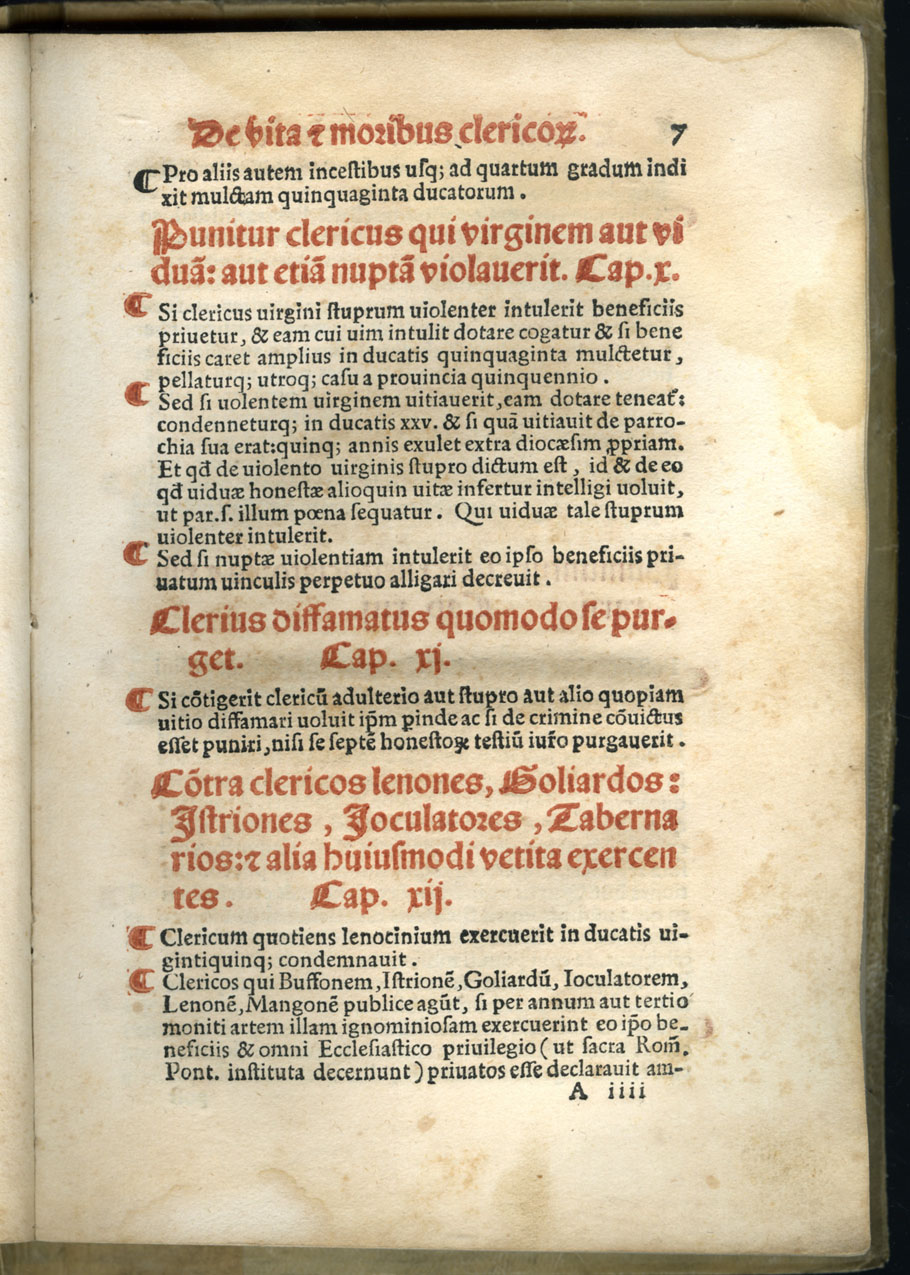 De vita ⁊ moribus clericoꝝ. 7
¶ Pro aliis autem incestibus usq; ad quartum gradum indi
xit mulctam quinquaginta ducatorum.
Punitur clericus qui virginem aut vi
duã: aut etiã nuptã violauerit. Cap. x.
¶ Si clericus uirgini stuprum uiolenter intulerit beneficiis
priuetur, & eam cui uim intulit dotare cogatur & si bene
ficiis caret amplius in ducatis quinquaginta mulctetur,
pellaturq; utroq; casu a prouincia quinquennio.
¶ Sed si uolentem uirginem uitiauerit, eam dotare teneat᷑:
condenneturq; in ducatis xxv. & si quã uitiauit de parro-
chia sua erat: quinq; annis exulet extra diocæsim ꝓpriam.
Et qđ de uiolento uirginis stupro dictum est, id & de eo
qđ uiduæ honestæ alioquin uitæ infertur intelligi uoluit,
ut par.s. illum pœna sequatur. Qui uiduæ tale stuprum
uiolenter intulerit.
¶ Sed si nuptæ uiolentiam intulerit eo ipso beneficiis pri-
uatum uinculis perpetuo alligari decreuit.
Clerius diffamatus quomodo se pur-
get. Cap. xj.
¶ Si cõtigerit clericũ adulterio aut stupro aut alio quopiam
uitio diffamari uoluit ip̃m ꝑinde ac si de crimine cõuictus
esset puniri, nisi se septẽ honestoꝝ testiũ iur̃o purgauerit.
Cõtra clericos lenones, Goliardos:
Istriones, Joculatores, Taberna
rios: ⁊ alia huiusmodi vetita exercen
tes. Cap. xij.
¶ Clericum quotiens lenocinium exercuerit in ducatis ui-
gintiquinq; condemnauit.
¶ Clericos qui Buffonem, Istrionẽ, Goliardũ, Ioculatorem,
Lenonẽ, Mangonẽ publice agũt, si per annum aut tertio
moniti artem illam ignominiosam exercuerint eo ip̃o be-
neficiis & omni Ecclesiastico priuilegio (ut sacra Rom̃.
Pont. instituta decernunt) priuatos esse declarauit am-
A iiii